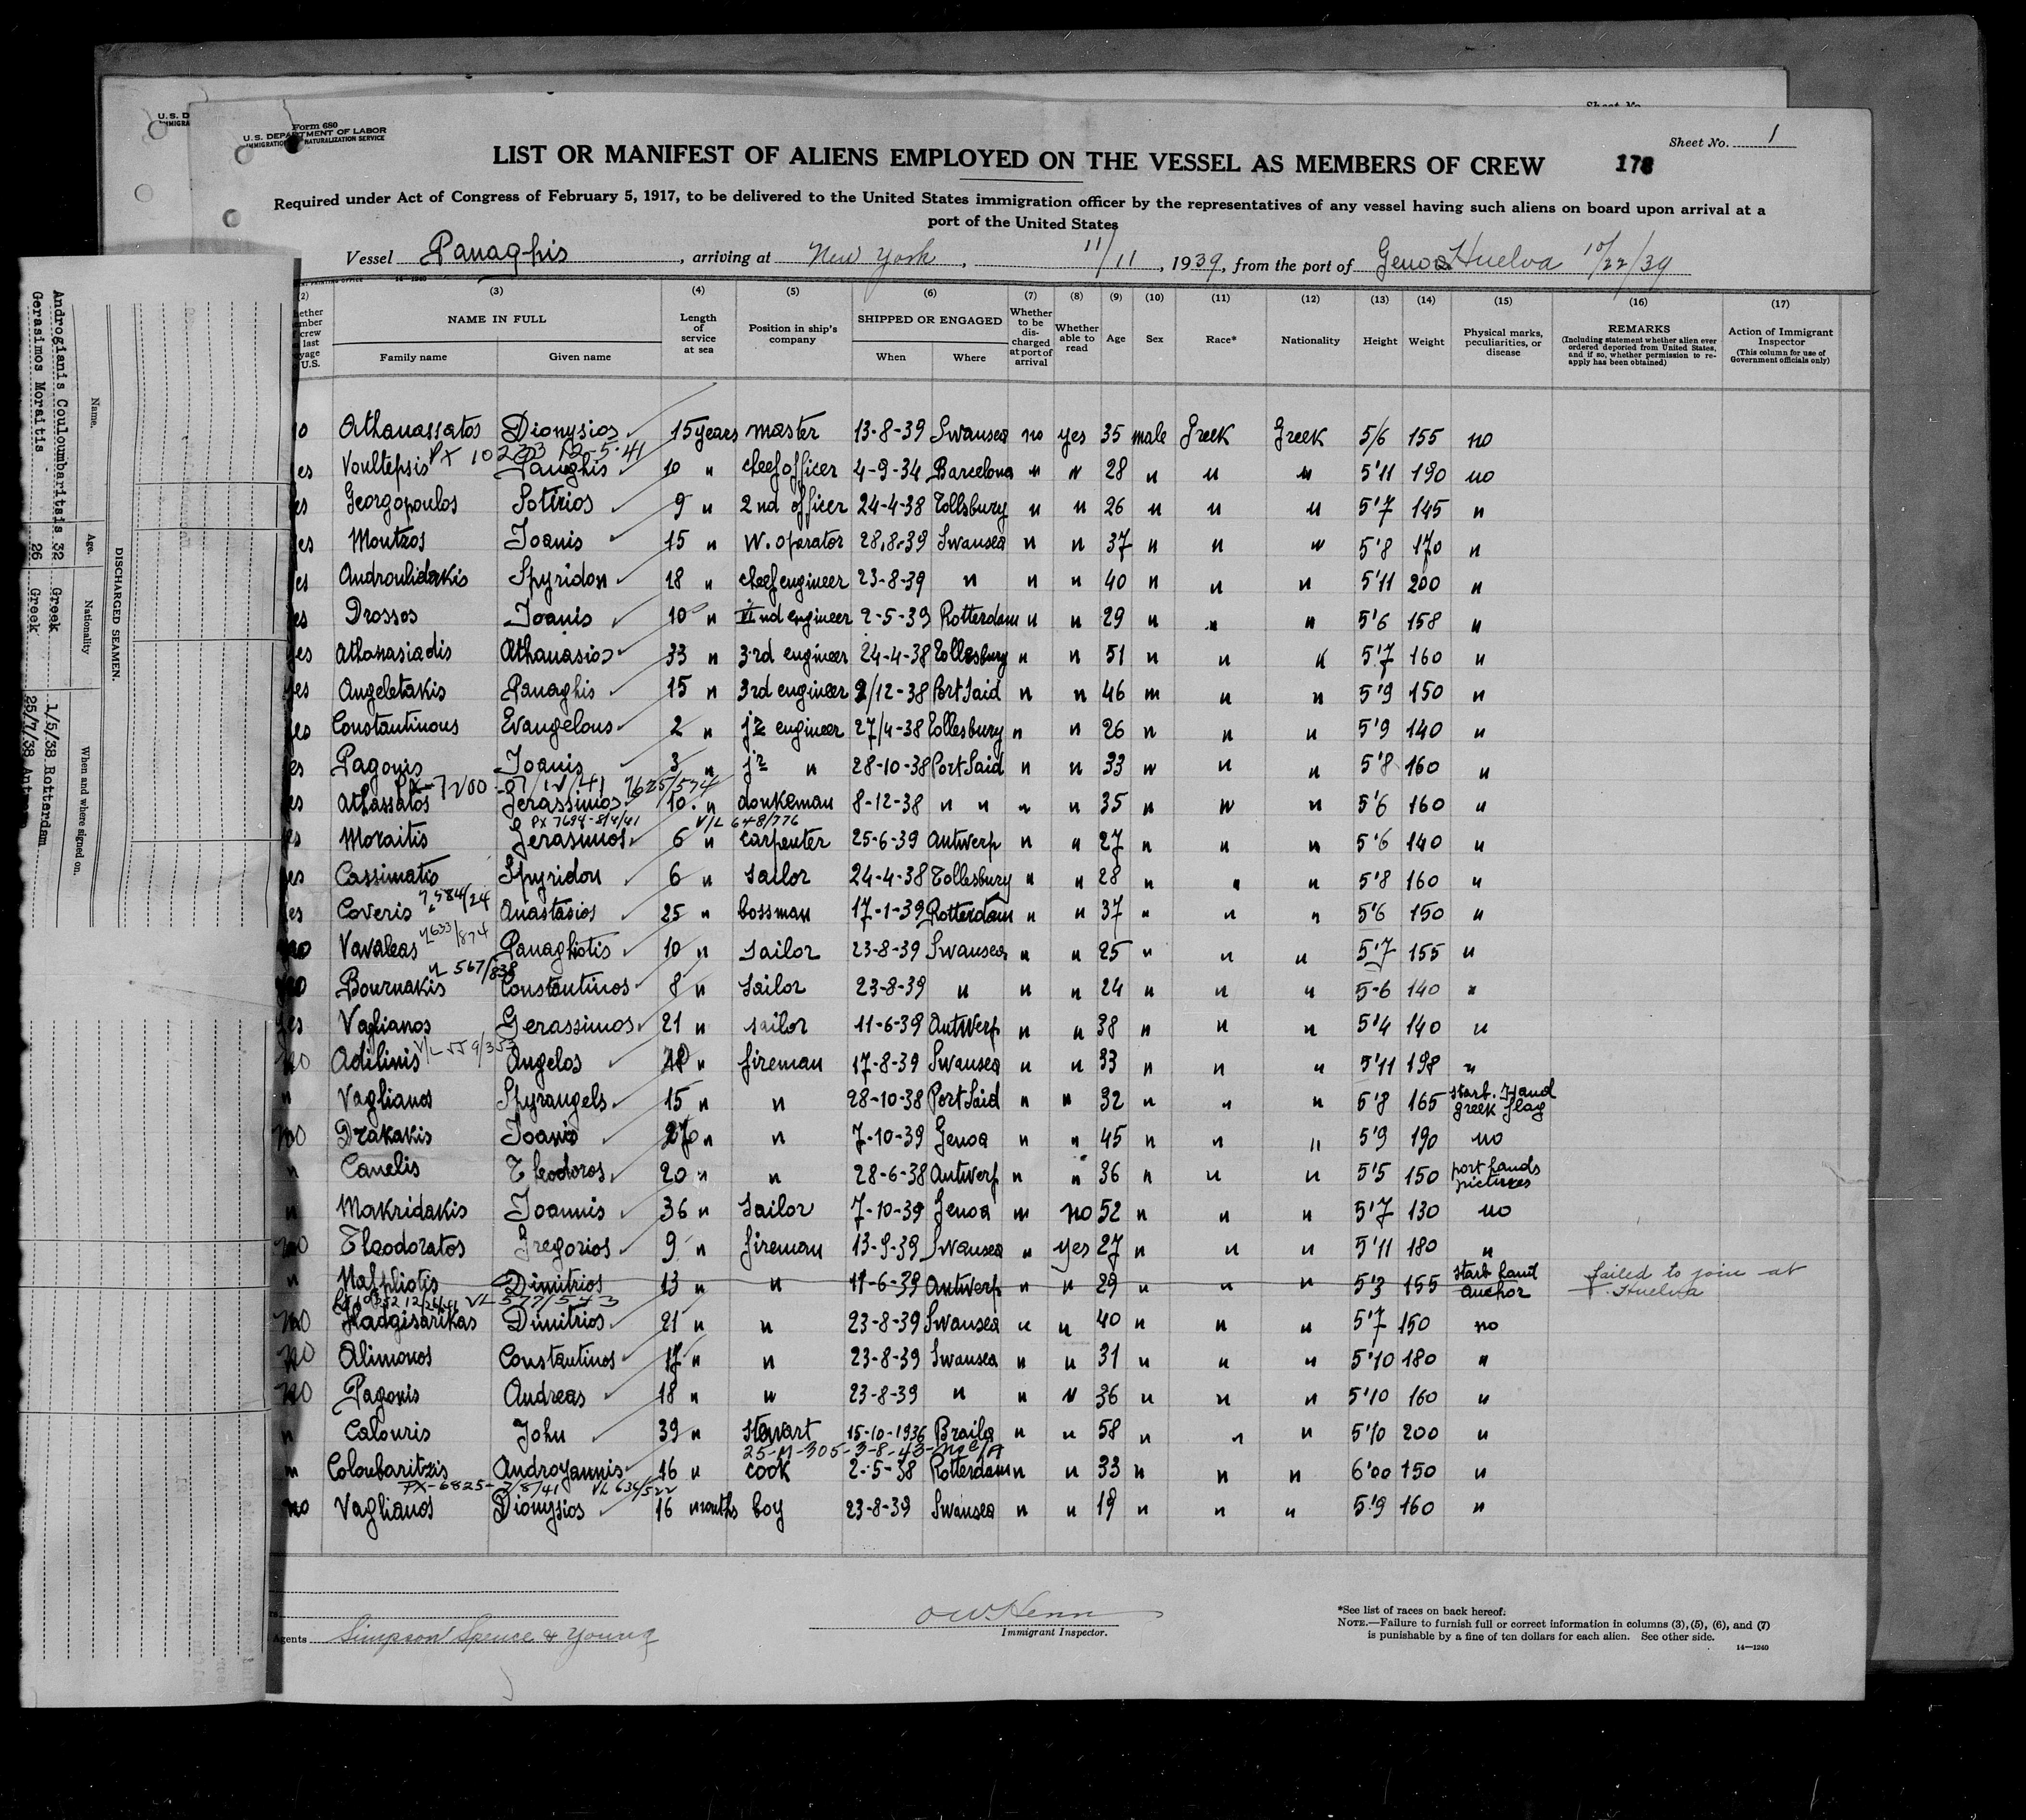 Form 680
U.S. DEPARTMENT OF LABOR
IMMIGRATION NATURALIZATION SERVICE
Sheet No. 1
LIST OR MANIFEST OF ALIENS EMPLOYED ON THE VESSEL AS MEMBERS OF CREW
178
Required under Act of Congress of February 5, 1917, to be delivered to the United States immigration officer by the representatives of any vessel having such aliens on board upon arrival at a
port of the United States
Vessel Panaghis, arriving at New York, 11/11, 1939, from the port of Genoa Huelva 10/22/39
(2) (3) (4) (5) (6) (7) (8) (9) (10) (11) (12) (13) (14) (15) (16) (17)
NAME IN FULL
Family name Given name
Length of service at sea
Position in ship's company
SHIPPED OR ENGAGED
When Where
Whether to be discharged at port of arrival
Whether able to read
Age Sex Race* Nationality Height Weight
Physical marks, peculiarities, or disease
REMARKS
(Including statement whether alien ever ordered deported from United States, and if so, whether permission to reapply has been obtained)
Action of Immigrant Inspector
(This column for use of Government officials only)
Athanassatos Dionysios 15 years master 13-8-39 Swansea no yes 35 male Greek Greek 5/6 155 no
PX 10233 12-5-41
es Voultepsis Panaghis 10 " cheef officer 4-9-34 Barcelona " " 28 " " " 5'11 190 no
es Georgopoulos Sotirios 9 " 2nd officer 24-4-38 Tollsbury " " 26 " " " 5'7 145 "
es Montzos Joanis 15 " W. operator 28.8-39 Swansea " " 37 " " " 5'8 170 "
es Androulidakis Spyridon 18 " cheef engineer 23-8-39 " " " 40 " " " 5'11 200 "
es Drossos Joanis 10 " IInd engineer 2-5-39 Rotterdam " " 29 " " " 5'6 158 "
yes Athanasiadis Athanasios 33 " 3rd engineer 24-4-38 Tollesbury " " 51 " " " 5'7 160 "
yes Angeletakis Panaghis 15 " 3rd engineer 2/12-38 Port Said " " 46 " " " 5'9 150 "
yes Constantinous Evangelous 2 " jr engineer 27/4-38 Tollesbury " " 26 " " " 5'9 140 "
es Pagonis Joanis 3 " jr " 28-10-38 Port Said " " 33 " " " 5'8 160 "
7625/574
es Athassatos Gerassimos 10 " donkeman 8-12-38 " " " " 35 " " " 5'6 160 "
PX 7694-8/4/41 V/L 648/776
yes Moraitis Gerasimos 6 " carpenter 25-6-39 Antwerp " " 27 " " " 5'6 140 "
yes Cassimatis Spyridon 6 " sailor 24-4-38 Tollesbury " " 28 " " " 5'8 160 "
es Coveris Anastasios 25 " bossman 17-1-39 Rotterdam " " 37 " " " 5'6 150 "
no Vavaleas Panaghiotis 10 " sailor 23-8-39 Swansea " " 25 " " " 5'7 155 "
567/838
no Bournakis Constantinos 8 " sailor 23-8-39 " " " 24 " " " 5-6 140 "
yes Vaglianos Gerassimos 21 " sailor 11-6-39 Antwerp " " 38 " " " 5'4 140 "
no Adilinis Angelos " fireman 17-8-39 Swansea " " 33 " " " 5'11 198 "
" Vaglianos Spyrangels 15 " " 28-10-38 Port Said " " 32 " " " 5'8 165 starb. Hand greek flag
no Drakakis Joanis 27 " " 7-10-39 Genoa " " 45 " " " 5'9 190 no
" Canelis Theodoros 20 " " 28-6-38 Antwerp " " 36 " " " 5'5 150 port hands pictures
" Makridakis Joannis 36 " sailor 7-10-39 Genoa " no 52 " " " 5'7 130 no
no Theodoratos Gregorios 9 " fireman 13-9-39 Swansea " yes 27 " " " 5'11 180 "
" Nafpliotis Dimitrios 13 " " 11-6-39 Antwerp " " 29 " " " 5'3 155 starb hand anchor failed to join at Huelva
12/26/41 VL 577/543
no Hadgisarikas Dimitrios 21 " " 23-8-39 Swansea " " 40 " " " 5'7 150 no
no Alimonos Constantinos 17 " " 23-8-39 Swansea " " 31 " " " 5'10 180 "
no Pagonis Andreas 18 " " 23-8-39 " " " 36 " " " 5'10 160 "
" Calouris John 39 " stewart 15-10-1936 Braila " " 58 " " " 5'10 200 "
25-M-305-3-8-43
" Coloubaritzis Androyannis 16 " cook 2-5-38 Rotterdam " " 33 " " " 6'00 150 "
PX-6825-7/8/41 VL 634/522
no Vaglianos Dionysios 16 months boy 23-8-39 Swansea " " 19 " " " 5'9 160 "
Agents Simpson Spence & Young
O W. Henn
Immigrant Inspector.
*See list of races on back hereof.
NOTE.—Failure to furnish full or correct information in columns (3), (5), (6), and (7)
is punishable by a fine of ten dollars for each alien. See other side.
14—1240
DISCHARGED SEAMEN.
Name. Age. Nationality When and where signed on.
Androgianis Couloumbaritsis 32 Greek 1/5/38 Rotterdam
Gerasimos Moraitis 26 Greek 25/7/38